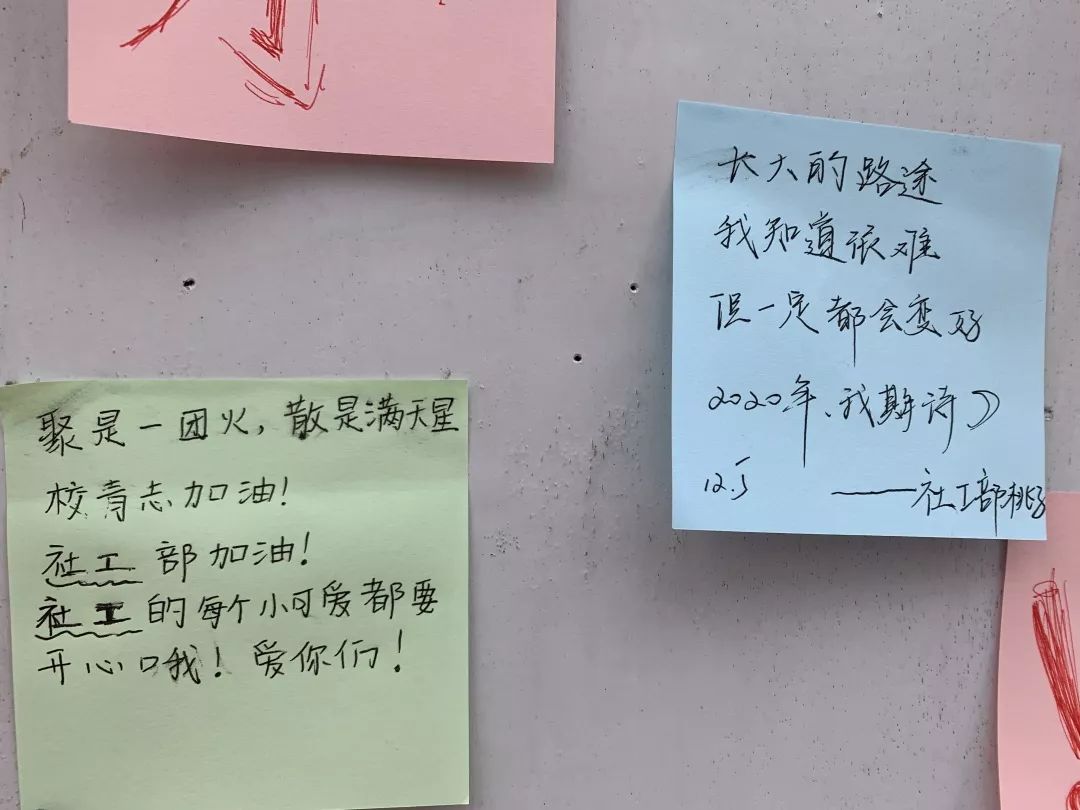 聚是一团火,散是满天星
校青志加油!
社工部加油!
社工的每个小可爱都要
开心哦!爱你们!
长大的路途
我知道很难
但一定都会变好
2020年、我期待》
12.5 ——社工部桃子